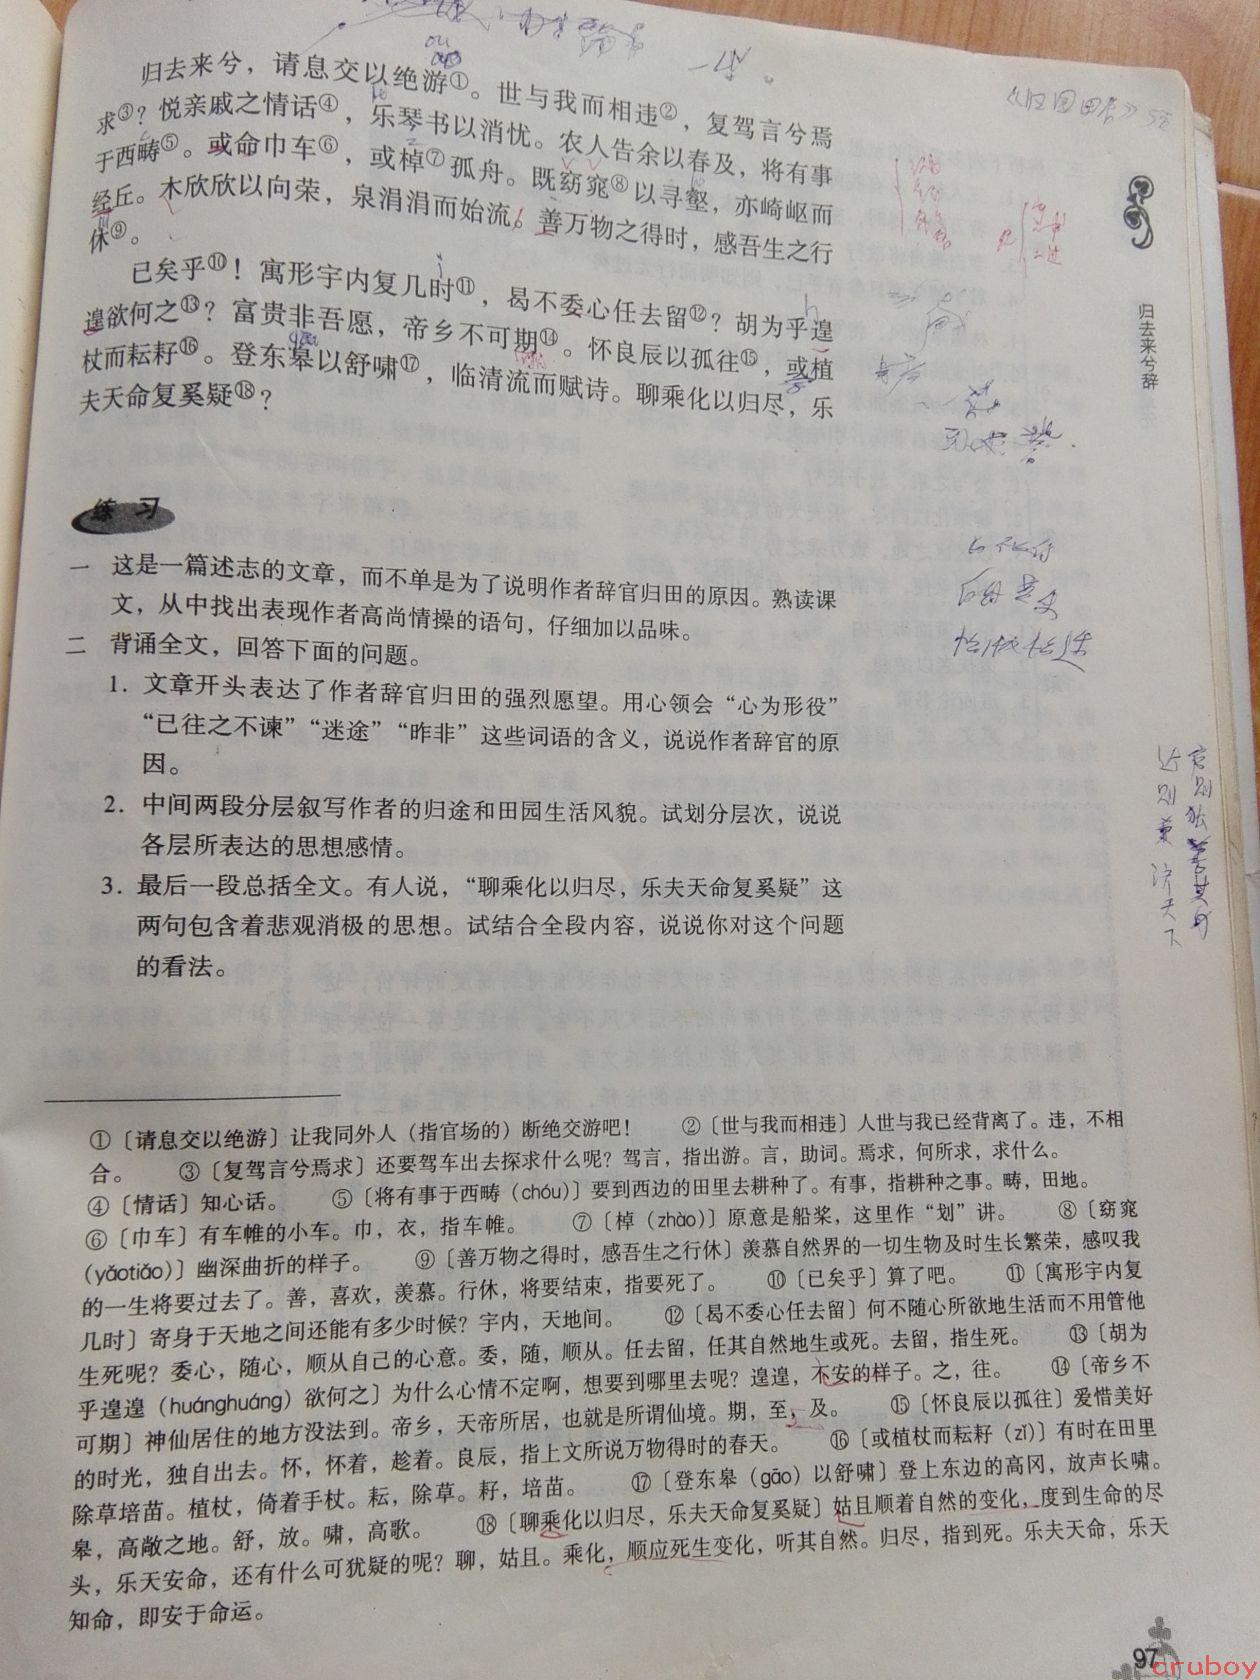 归去来兮，请息交以绝游①。世与我而相违②，复驾言兮焉
求③？悦亲戚之情话④，乐琴书以消忧。农人告余以春及，将有事
于西畴⑤。或命巾车⑥，或棹⑦孤舟。既窈窕⑧以寻壑，亦崎岖而
经丘。木欣欣以向荣，泉涓涓而始流。善万物之得时，感吾生之行
休⑨。
已矣乎⑩！寓形宇内复几时⑪，曷不委心任去留⑫？胡为乎遑
遑欲何之⑬？富贵非吾愿，帝乡不可期⑭。怀良辰以孤往⑮，或植
杖而耘耔⑯。登东皋以舒啸⑰，临清流而赋诗。聊乘化以归尽，乐
夫天命复奚疑⑱？
《归园田居》
归去来兮辞
练习
一 这是一篇述志的文章，而不单是为了说明作者辞官归田的原因。熟读课
文，从中找出表现作者高尚情操的语句，仔细加以品味。
二 背诵全文，回答下面的问题。
1. 文章开头表达了作者辞官归田的强烈愿望。用心领会“心为形役”
“已往之不谏”“迷途”“昨非”这些词语的含义，说说作者辞官的原
因。
2. 中间两段分层叙写作者的归途和田园生活风貌。试划分层次，说说
各层所表达的思想感情。
3. 最后一段总括全文。有人说，“聊乘化以归尽，乐夫天命复奚疑”这
两句包含着悲观消极的思想。试结合全段内容，说说你对这个问题
的看法。
穷则独善其身
达则兼济天下
①〔请息交以绝游〕让我同外人（指官场的）断绝交游吧！ ②〔世与我而相违〕人世与我已经背离了。违，不相
合。 ③〔复驾言兮焉求〕还要驾车出去探求什么呢？驾言，指出游。言，助词。焉求，何所求，求什么。
④〔情话〕知心话。 ⑤〔将有事于西畴（chóu）〕要到西边的田里去耕种了。有事，指耕种之事。畴，田地。
⑥〔巾车〕有车帷的小车。巾，衣，指车帷。 ⑦〔棹（zhào）〕原意是船桨，这里作“划”讲。 ⑧〔窈窕
（yǎotiǎo）〕幽深曲折的样子。 ⑨〔善万物之得时，感吾生之行休〕羡慕自然界的一切生物及时生长繁荣，感叹我
的一生将要过去了。善，喜欢，羡慕。行休，将要结束，指要死了。 ⑩〔已矣乎〕算了吧。 ⑪〔寓形宇内复
几时〕寄身于天地之间还能有多少时候？宇内，天地间。 ⑫〔曷不委心任去留〕何不随心所欲地生活而不用管他
生死呢？委心，随心，顺从自己的心意。委，随，顺从。任去留，任其自然地生或死。去留，指生死。 ⑬〔胡为
乎遑遑（huánghuáng）欲何之〕为什么心情不定啊，想要到哪里去呢？遑遑，不安的样子。之，往。 ⑭〔帝乡不
可期〕神仙居住的地方没法到。帝乡，天帝所居，也就是所谓仙境。期，至，及。 ⑮〔怀良辰以孤往〕爱惜美好
的时光，独自出去。怀，怀着，趁着。良辰，指上文所说万物得时的春天。 ⑯〔或植杖而耘耔（zǐ）〕有时在田里
除草培苗。植杖，倚着手杖。耘，除草。耔，培苗。 ⑰〔登东皋（gāo）以舒啸〕登上东边的高冈，放声长啸。
皋，高敞之地。舒，放。啸，高歌。 ⑱〔聊乘化以归尽，乐夫天命复奚疑〕姑且顺着自然的变化，度到生命的尽
头，乐天安命，还有什么可犹疑的呢？聊，姑且。乘化，顺应死生变化，听其自然。归尽，指到死。乐夫天命，乐天
知命，即安于命运。
97
cruboy